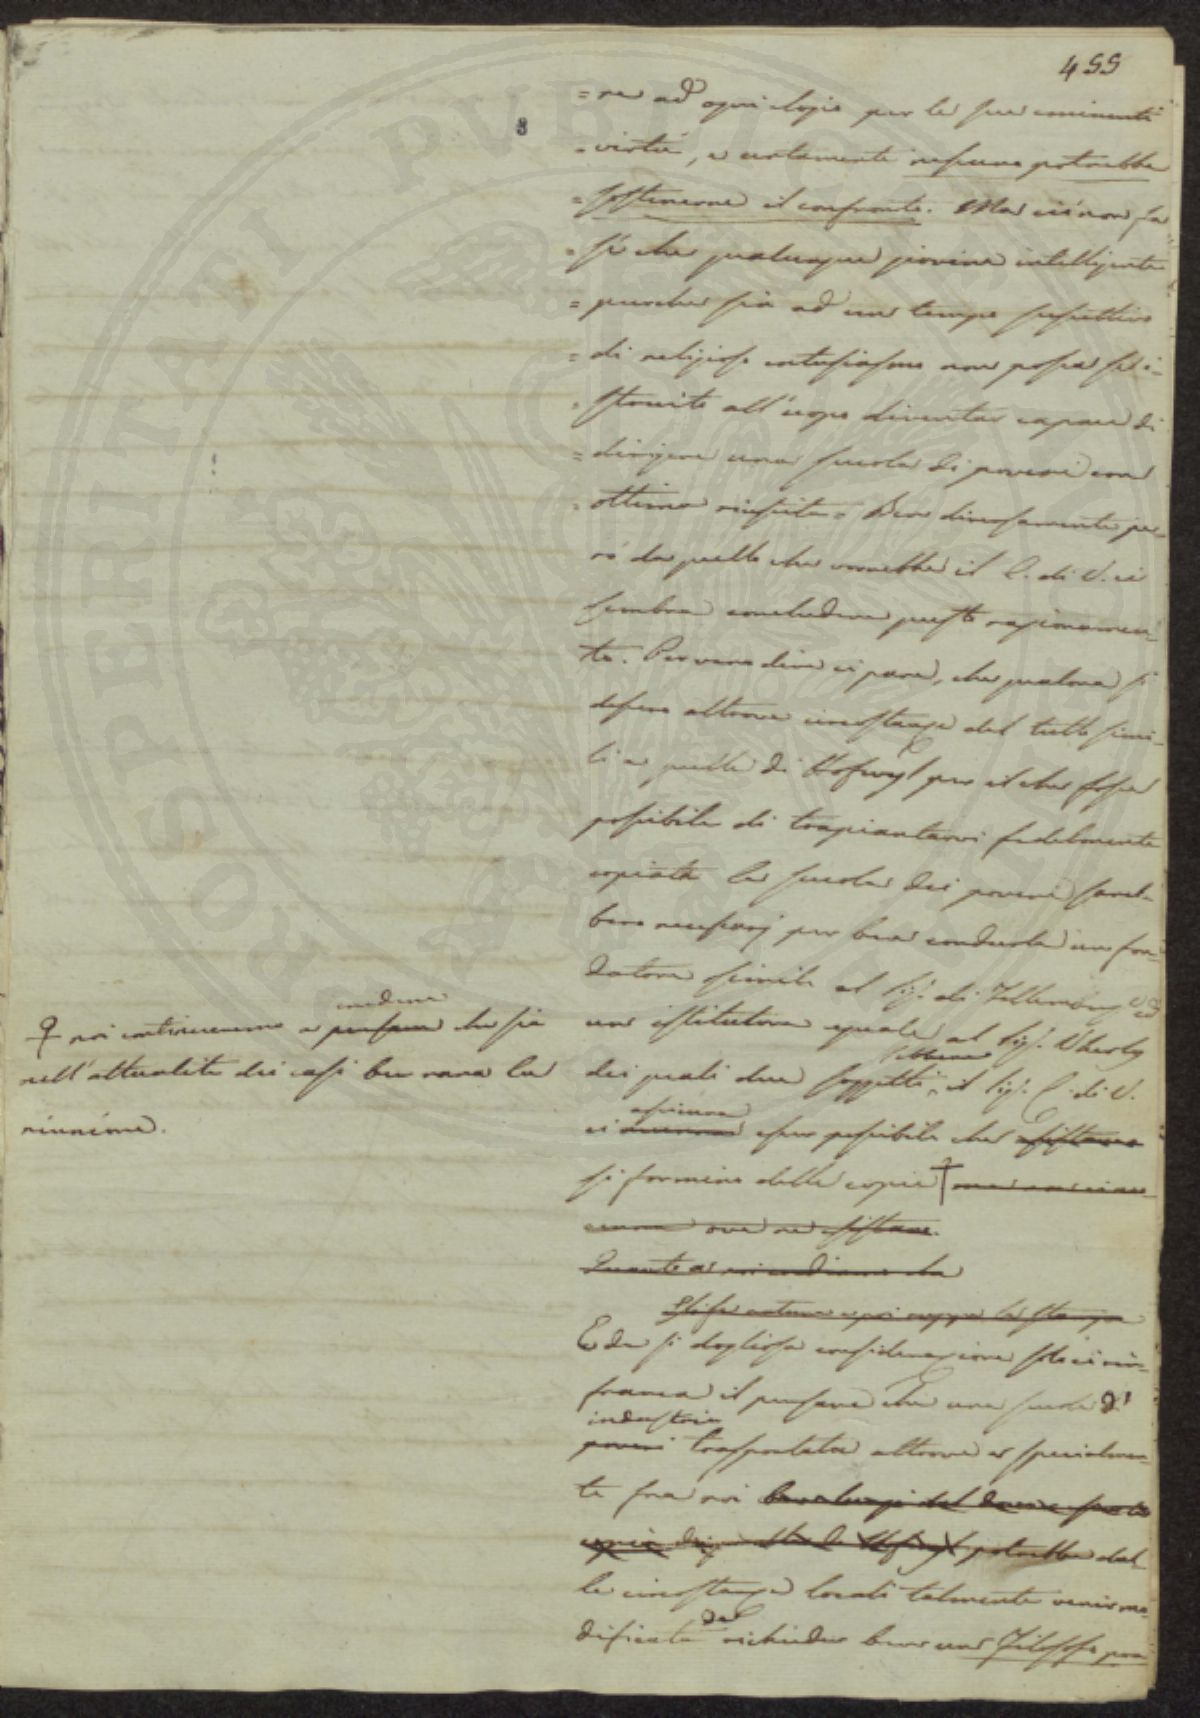 455
=re ad ogni elogio per le sue eminenti
=virtù, e certamente nessuno potrebbe
=sostenerne il confronto. Ma ciò non fa
=sì che qualunque giovine intelligente
=purché sia ad un tempo suscettivo
=di religioso entusiasmo non possa se i-
=struito all'uopo diventar capace di
=dirigere una scuola di poveri con
=ottima riuscita= Ben diversamente pe-
rò da quello che vorrebbe il C. di V. ci
sembra concludere questo ragionamen-
to. Per vero dire ci pare, che qualora si
dessero altrove circostanze del tutto simi-
li a quelle di Hofwyl per il che fosse
possibile di trapiantarvi fedelmente
copiata la scuola dei poveri sareb-
bero necessarj per ben condurla un fon-
datore simile al Sig. di Fellemberg ed
un istitutore eguale al Sig. Wherly
dei quali due soggetti, il Sig. C. di V.
assicura
ci esser possibile che esistano
si formino delle copie
ove ne esistano.
Quanto a noi crediamo che
E da sì dogliosa considerazione solo ci rin-
franca il pensare che una scuola d'
industria
poveri trasportata altrove e specialmen-
te fra noi
potrebbe dal-
le circostanze locali talmente venir mo-
dificata da richieder bene un Filosofo per
credere
noi continueremo a pensare che sia
nell'attualità dei casi ben rara la
riunione.
PROSPERITATI PVBLICAE